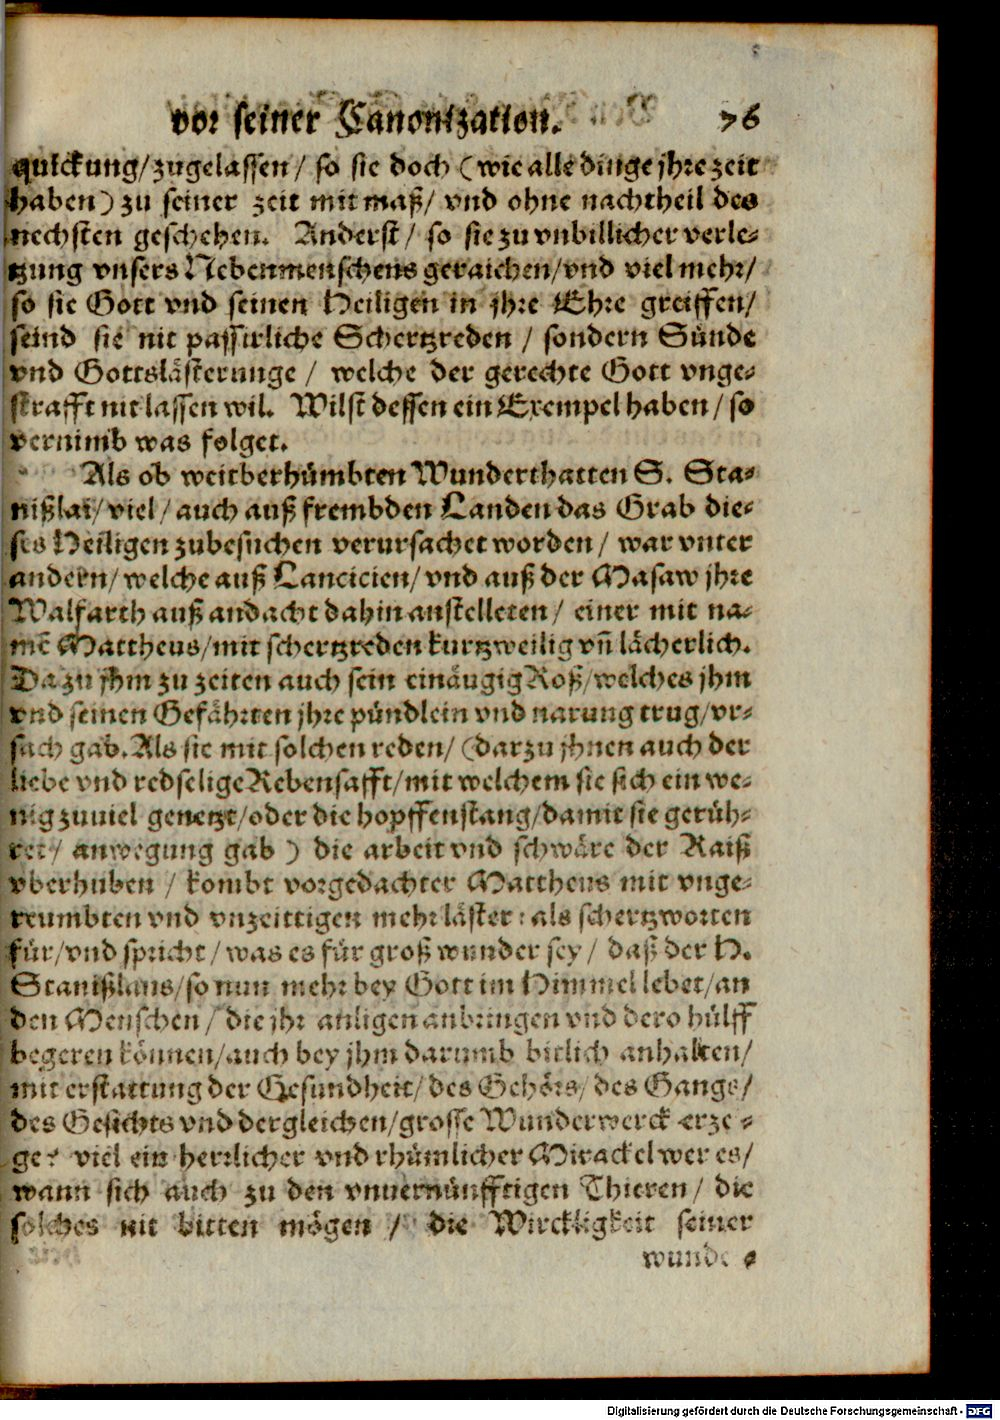 vor seiner Canonization. 76
quickung/zugelassen/ so sie doch (wie alle dinge jhre zeit
haben) zu seiner zeit mit maß/ vnd ohne nachtheil des
nechsten geschehen. Anderst/ so sie zu vnbillicher verle-
tzung vnsers Nebenmenschens geraichen/vnd viel mehr/
so sie Gott vnd seinen Heiligen in jhre Ehre greiffen/
seind sie nit passirliche Schertzreden / sondern Sünde
vnd Gottslästerunge / welche der gerechte Gott vnge-
strafft nit lassen wil. Wilst dessen ein Exempel haben/ so
vernimb was folget.
Als ob weitberhümbten Wunderthatten S. Sta-
nißlai/ viel/ auch auß frembden Landen das Grab die-
ses Heiligen zubesuchen verursachet worden/ war vnter
andern/ welche auß Lancicien/ vnd auß der Masaw jhre
Walfarth auß andacht dahin anstelleten/ einer mit na-
mẽ Mattheus/mit schertzreden kurtzweilig vñ lächerlich.
Da zu jhm zu zeiten auch sein einäugig Roß/welches jhm
vnd seinen Gefährten jhre pündlein vnd narung trug/vr-
sach gab. Als sie mit solchen reden/ (darzu jhnen auch der
liebe vnd redselige Rebensafft/mit welchem sie sich ein we-
nig zuuiel genetzt/oder die hopffenstang/damit sie gerüh-
ret/ anwegung gab ) die arbeit vnd schwäre der Raiß
vberhuben / kombt vorgedachter Mattheus mit vnge-
reumbten vnd vnzeittigen mehr läster: als schertzworten
für/vnd spricht/ was es für groß wunder sey/ daß der H.
Stanißlaus/so nun mehr bey Gott im Himmel lebet/an
den Menschen/ die jhr anligen anbringen vnd dero hülff
begeren können/auch bey jhm darumb bitlich anhalten/
mit erstattung der Gesundheit/ des Gehörs/ des Gangs/
des Gesichts vnd dergleichen/grosse Wunderwerck erze-
ge: viel ein herrlicher vnd rhümlicher Mirackel wer es/
wann sich auch zu den vnuernünfftigen Thieren/ die
solches nit bitten mögen / die Wirckligkeit seiner
wunde-
Digitalisierung gefördert durch die Deutsche Forschungsgemeinschaft - DFG